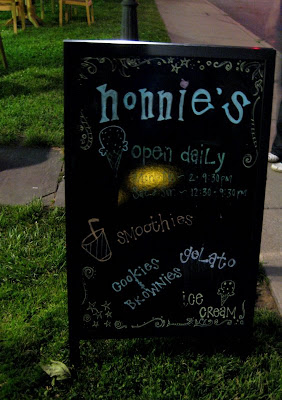 Nonnie's
open daily
2-9:30pm
12:30-9:30pm
smoothies
gelato
cookies
& BROWNIES
ice
cream